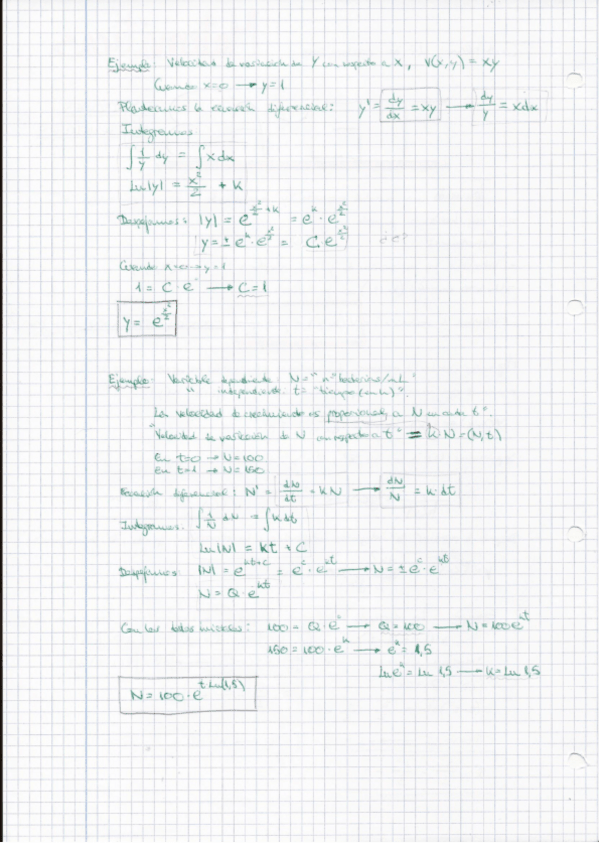 Ejemplo: Velocidad de variación de Y con respecto a x, V(x,y) = xy
Cuando x=0 → y=1
Planteamos la ecuación diferencial: y' = dy/dx = xy → dy/y = xdx
Integramos
∫ 1/y dy = ∫ xdx
Ln|y| = x²/2 + K
Despejamos: |y| = e^(x²/2 + k) = e^k · e^(x²/2)
y = ± e^k · e^(x²/2) = C e^(x²/2)
Cuando x=0 → y=1
1 = C · e° → C=1
y = e^(x²/2)
Ejemplo: Variable dependiente N = "nº bacterias/mL"
" independiente t = "tiempo (en h)".
La velocidad de crecimiento es proporcional a N en cada t".
"Velocidad de variación de N con respecto a t" = k·N = (N,t)
En t=0 → N=100
En t=1 → N=150
Ecuación diferencial: N' = dN/dt = kN → dN/N = k·dt
Integramos: ∫ 1/N dN = ∫ k dt
Ln|N| = kt + C
Despejamos: |N| = e^(kt+c) = e^c · e^(kt) → N = ± e^c · e^(kt)
N = Q · e^(kt)
Con los datos iniciales: 100 = Q · e° → Q = 100 → N = 100 e^(kt)
150 = 100 · e^k → e^k = 1,5
Ln e^k = Ln 1,5 → k = Ln 1,5
N = 100 · e^(t·Ln(1,5))